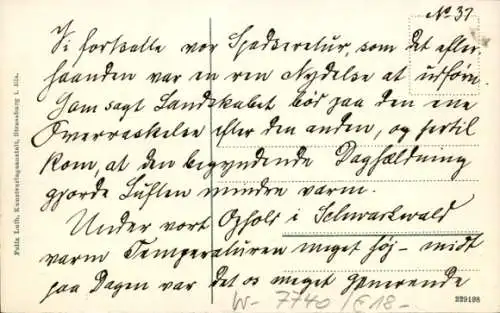 No 37
Vi fortsatte vor Spadseretur, som det efter-
haanden var en ren Nydelse at udføre.
Som sagt Landskabet bød paa den ene
Overraskelse efter den anden, og hertil
kom, at den begyndende Daghældning
gjorde Luften mindre varm.
Under vort Ophold i Schwarzwald
varm Temperatüren meget høj - midt
paa Dagen var det os meget generende
W- 7740 /E18-
229198
Felix Luib, Kunstverlagsanstalt, Strassburg i. Els.